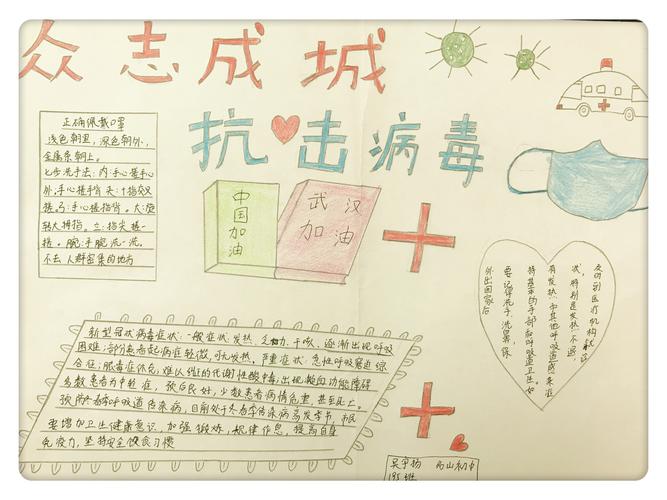 众志成城
抗击病毒
正确佩戴口罩
浅色朝里，深色朝外，
金属条朝上。
七步洗手法：内：手心搓手心
外：手心搓手背 夹：十指交叉
搓。弓：手心搓指背。大：旋
转大拇指。立：指尖搓一
搓。腕：手腕洗一洗。
不去人群密集的地方
中国加油
武汉
加油
及时到医疗机构就诊
状，特别是发热不退，
有发热和其他呼吸道感染症
持基本的手部和呼吸道卫生。如
要记得洗手、洗鼻，保
外出回家后
新型冠状病毒症状：一般症状：发热、乏力、干咳、逐渐出现呼吸
困难；部分患者起病症轻微，可无发热。严重症状：急性呼吸窘迫综
合症；脓毒症休克；难以纠正的代谢性酸中毒；出现凝血功能障碍
多数患者为中轻症，预后良好，少数患者病情危重，甚至死亡。
预防冬春季呼吸道传染病，目前处于冬春季传染病高发季节，市民
要增加卫生健康意识，加强锻炼，规律作息，提高自身
免疫力，坚持安全饮食习惯
195班